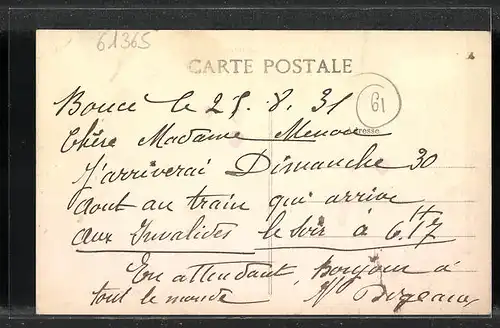 61365
CARTE POSTALE
61
Boucé le 25.8.31
Chère Madame
J'arriverai Dimanche 30
aout au train qui arrive
aux Invalides le soir à 6.17
En attendant, Bonjour à
tout le monde